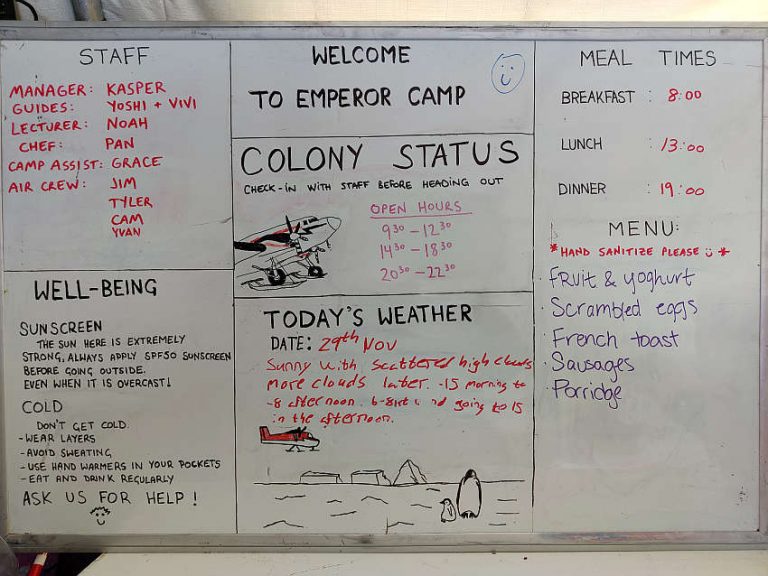 STAFF
MANAGER: KASPER
GUIDES: YOSHI + VIVI
LECTURER: NOAH
CHEF: PAN
CAMP ASSIST: GRACE
AIR CREW: JIM
TYLER
CAM
YVAN
WELL-BEING
SUNSCREEN
THE SUN HERE IS EXTREMELY
STRONG, ALWAYS APPLY SPF50 SUNSCREEN
BEFORE GOING OUTSIDE.
EVEN WHEN IT IS OVERCAST!
COLD
DON'T GET COLD.
- WEAR LAYERS
- AVOID SWEATING
- USE HAND WARMERS IN YOUR POCKETS
- EAT AND DRINK REGULARLY
ASK US FOR HELP!
WELCOME
TO EMPEROR CAMP
COLONY STATUS
CHECK-IN WITH STAFF BEFORE HEADING OUT
OPEN HOURS
9³⁰ - 12³⁰
14³⁰ - 18³⁰
20³⁰ - 22³⁰
TODAY'S WEATHER
DATE: 29th Nov
Sunny with scattered high clouds
more clouds later. -15 morning to
-8 afternoon. going to 15
in the afternoon.
MEAL TIMES
BREAKFAST : 8:00
LUNCH : 13:00
DINNER : 19:00
MENU:
*HAND SANITIZE PLEASE *
· Fruit & yoghurt
· Scrambled eggs
· French toast
· Sausages
· Porridge